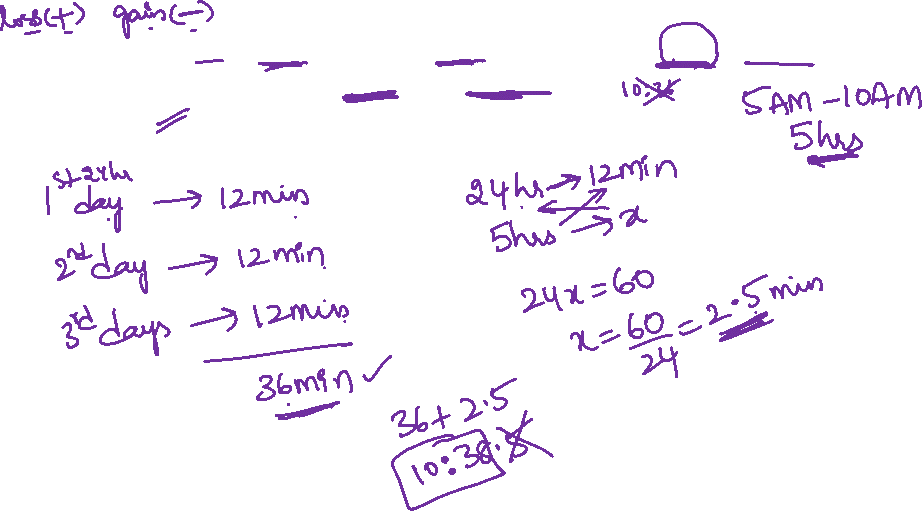 loss(+) gain(-)
5AM - 10AM
5hrs
1st 24hr day → 12min
2nd day → 12min
3rd days → 12min
36min ✓
24hr → 12min
5hrs → x
24x = 60
x = 60/24 = 2.5 min
36 + 2.5
10:38.5